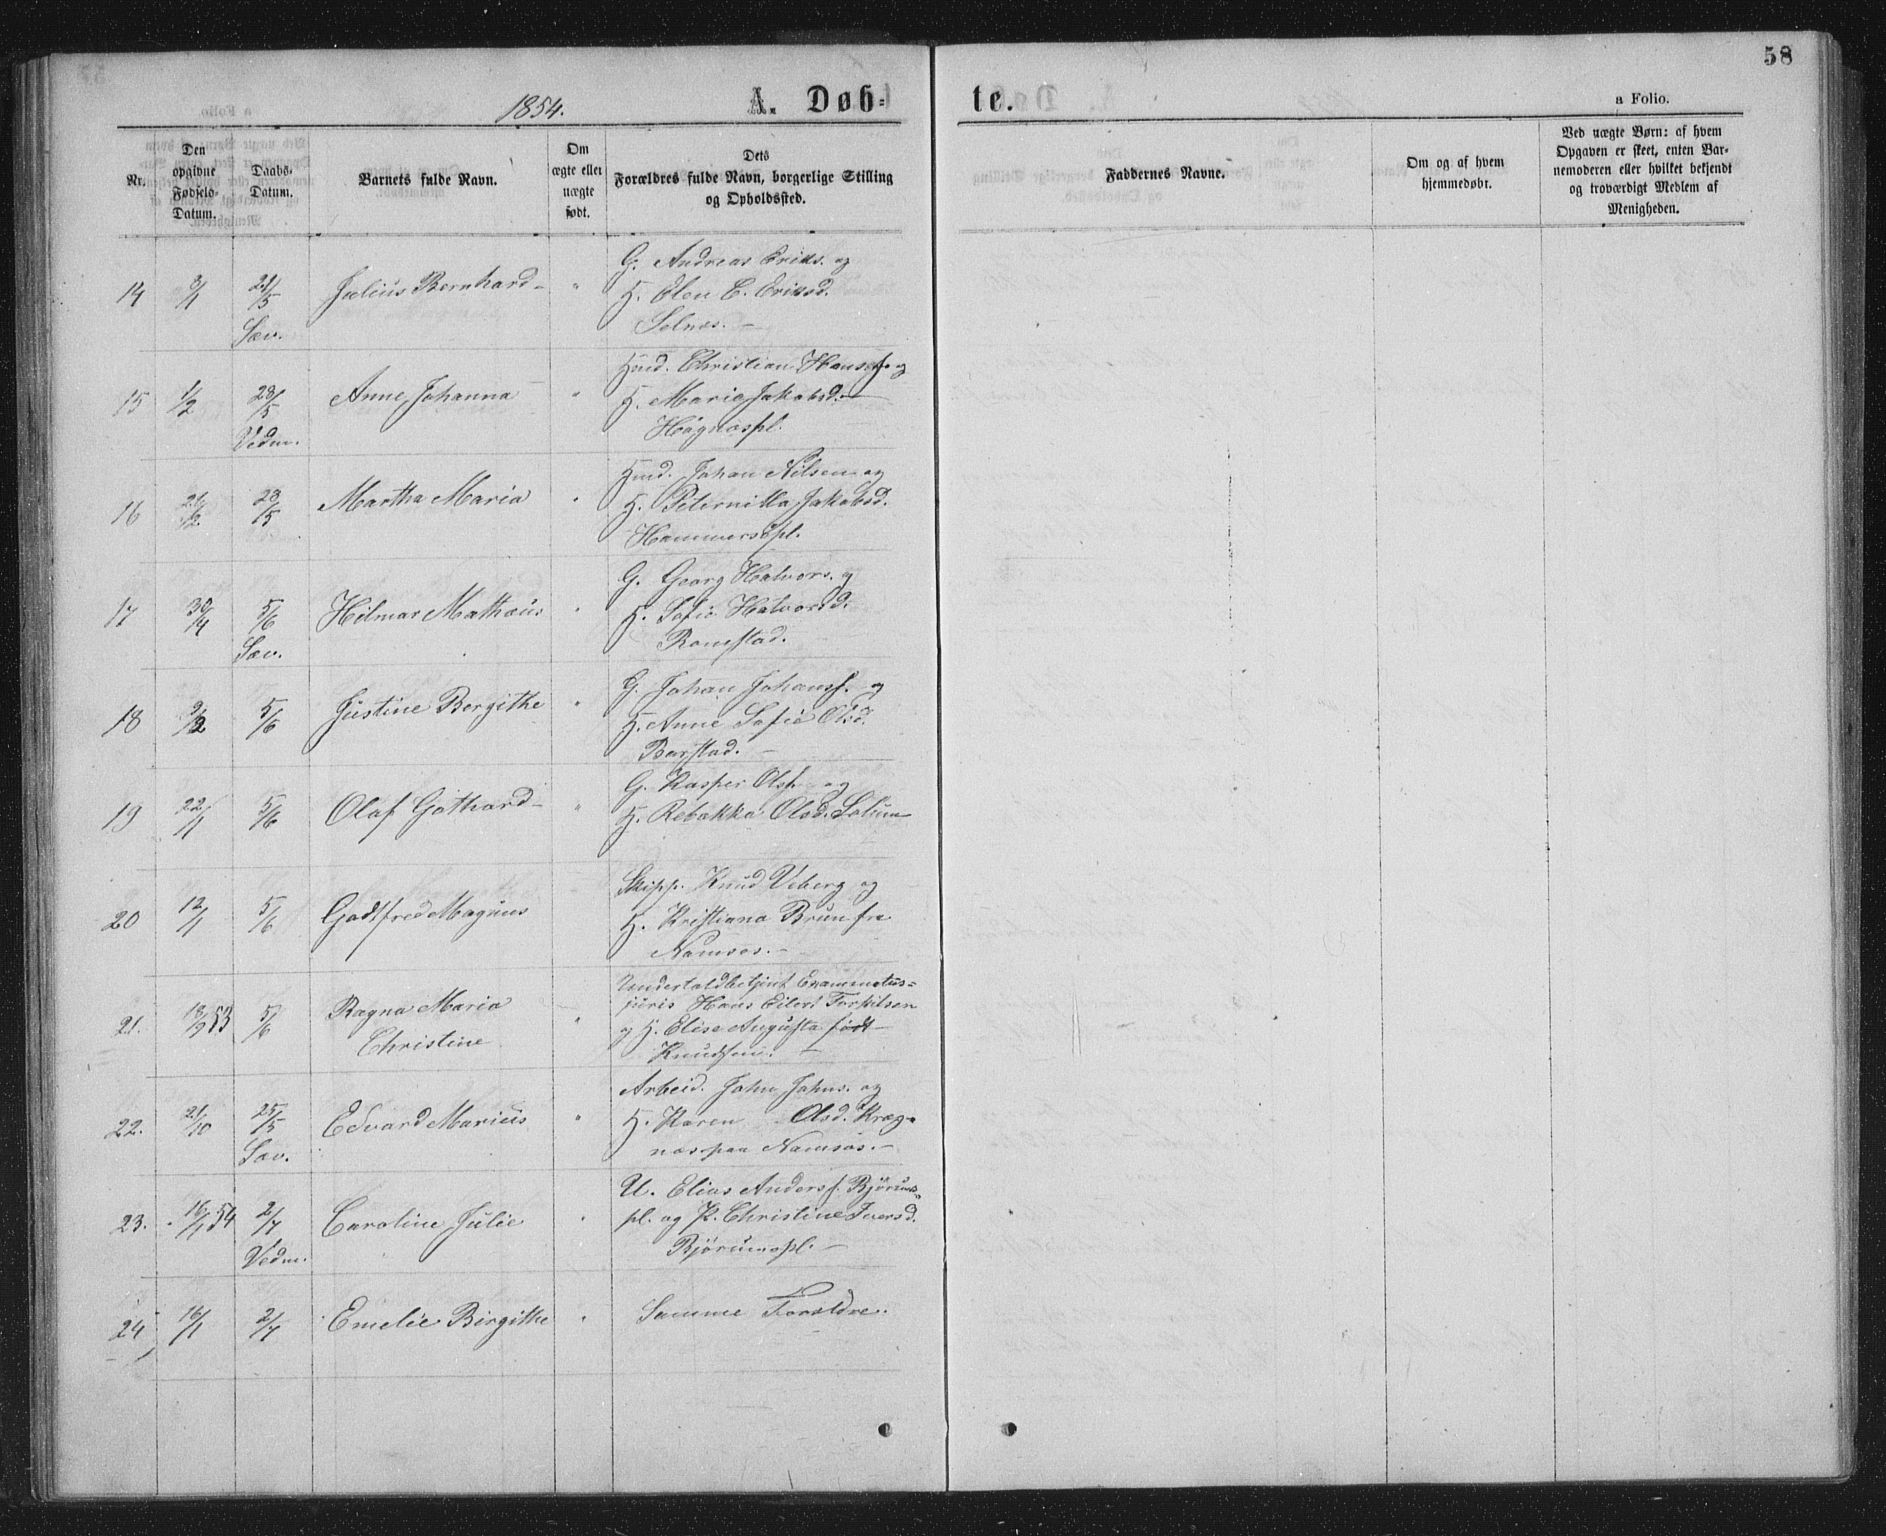 58
1854.
A. Døb-
te.
a Folio.
Nr.
Den opgivne Fødsels-Datum.
Daabs-Datum.
Barnets fulde Navn.
Om ægte eller uægte født.
Dets Forældres fulde Navn, borgerlige Stilling og Opholdssted.
Faddernes Navne.
Om og af hvem hjemmedøbt.
Ved uægte Børn: af hvem Opgaven er skeet, enten Barnemoderen eller hvilket bekjendt og troværdigt Medlem af Menigheden.
14 3/1 21/5 Julius Bernhard- " G. Andreas Eriks. og
Sæv. H. Elen C. Eriksd.
Selnæs.-
15 1/2 28/5 Anne Johanna " Hmd. Christian Hansf. og
Vedm. H. Marie Jakobsd.-
Høgnæspl.
16 21/2 28/5 Martha Maria " Hmd. Johan Nilsen og
H. Peternilla Jakobsd.
Hammerspl.
17 30/4 5/6 Hilmar Mathæus " G. Georg Halvors. og
Sæv. H. Sofie Halvorsd.
Romstad.
18 9/2 5/6 Justine Bergithe " G. Johan Johansf. og
H. Anne Sofie Olsd.
Barstad.-
19 22/1 5/6 Olaf Gothard- " G. Kasper Olsf. og
H. Rebekka Olsd. Solum
20 12/1 5/6 Godtfred Magnus Skipp. Knud Veberg og
H. Kristiana Brun fra
Namsos.-
21. 18/9 53 5/6 Ragna Maria " Undertoldbetjent Examinatus-
Christine juris Hans Eilert Torkilsen
og H. Elise Augusta født
Knudsen.-
22. 21/10 25/5 Edvard Marius " Arbeid. John Johns. og
Sæv. H. Karen Olsd. Kræg-
næs paa Namsos.-
23. 16/1 54 2/7 Caroline Julie " U. Elias Andersf. Bjørums-
Vedm. pl. og P. Christine Iversd.
Bjørumspl.-
24 16/1 2/7 Emelie Birgithe " Samme Forældre.